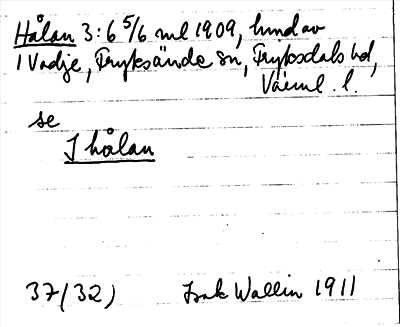 Hålan 3:6 5/6 mtl 1909, hmd av
1 Vadje, Fryksände sn, Fryksdals hd,
Värml. l.
se
I hålan
37(32) Isak Wallin 1911